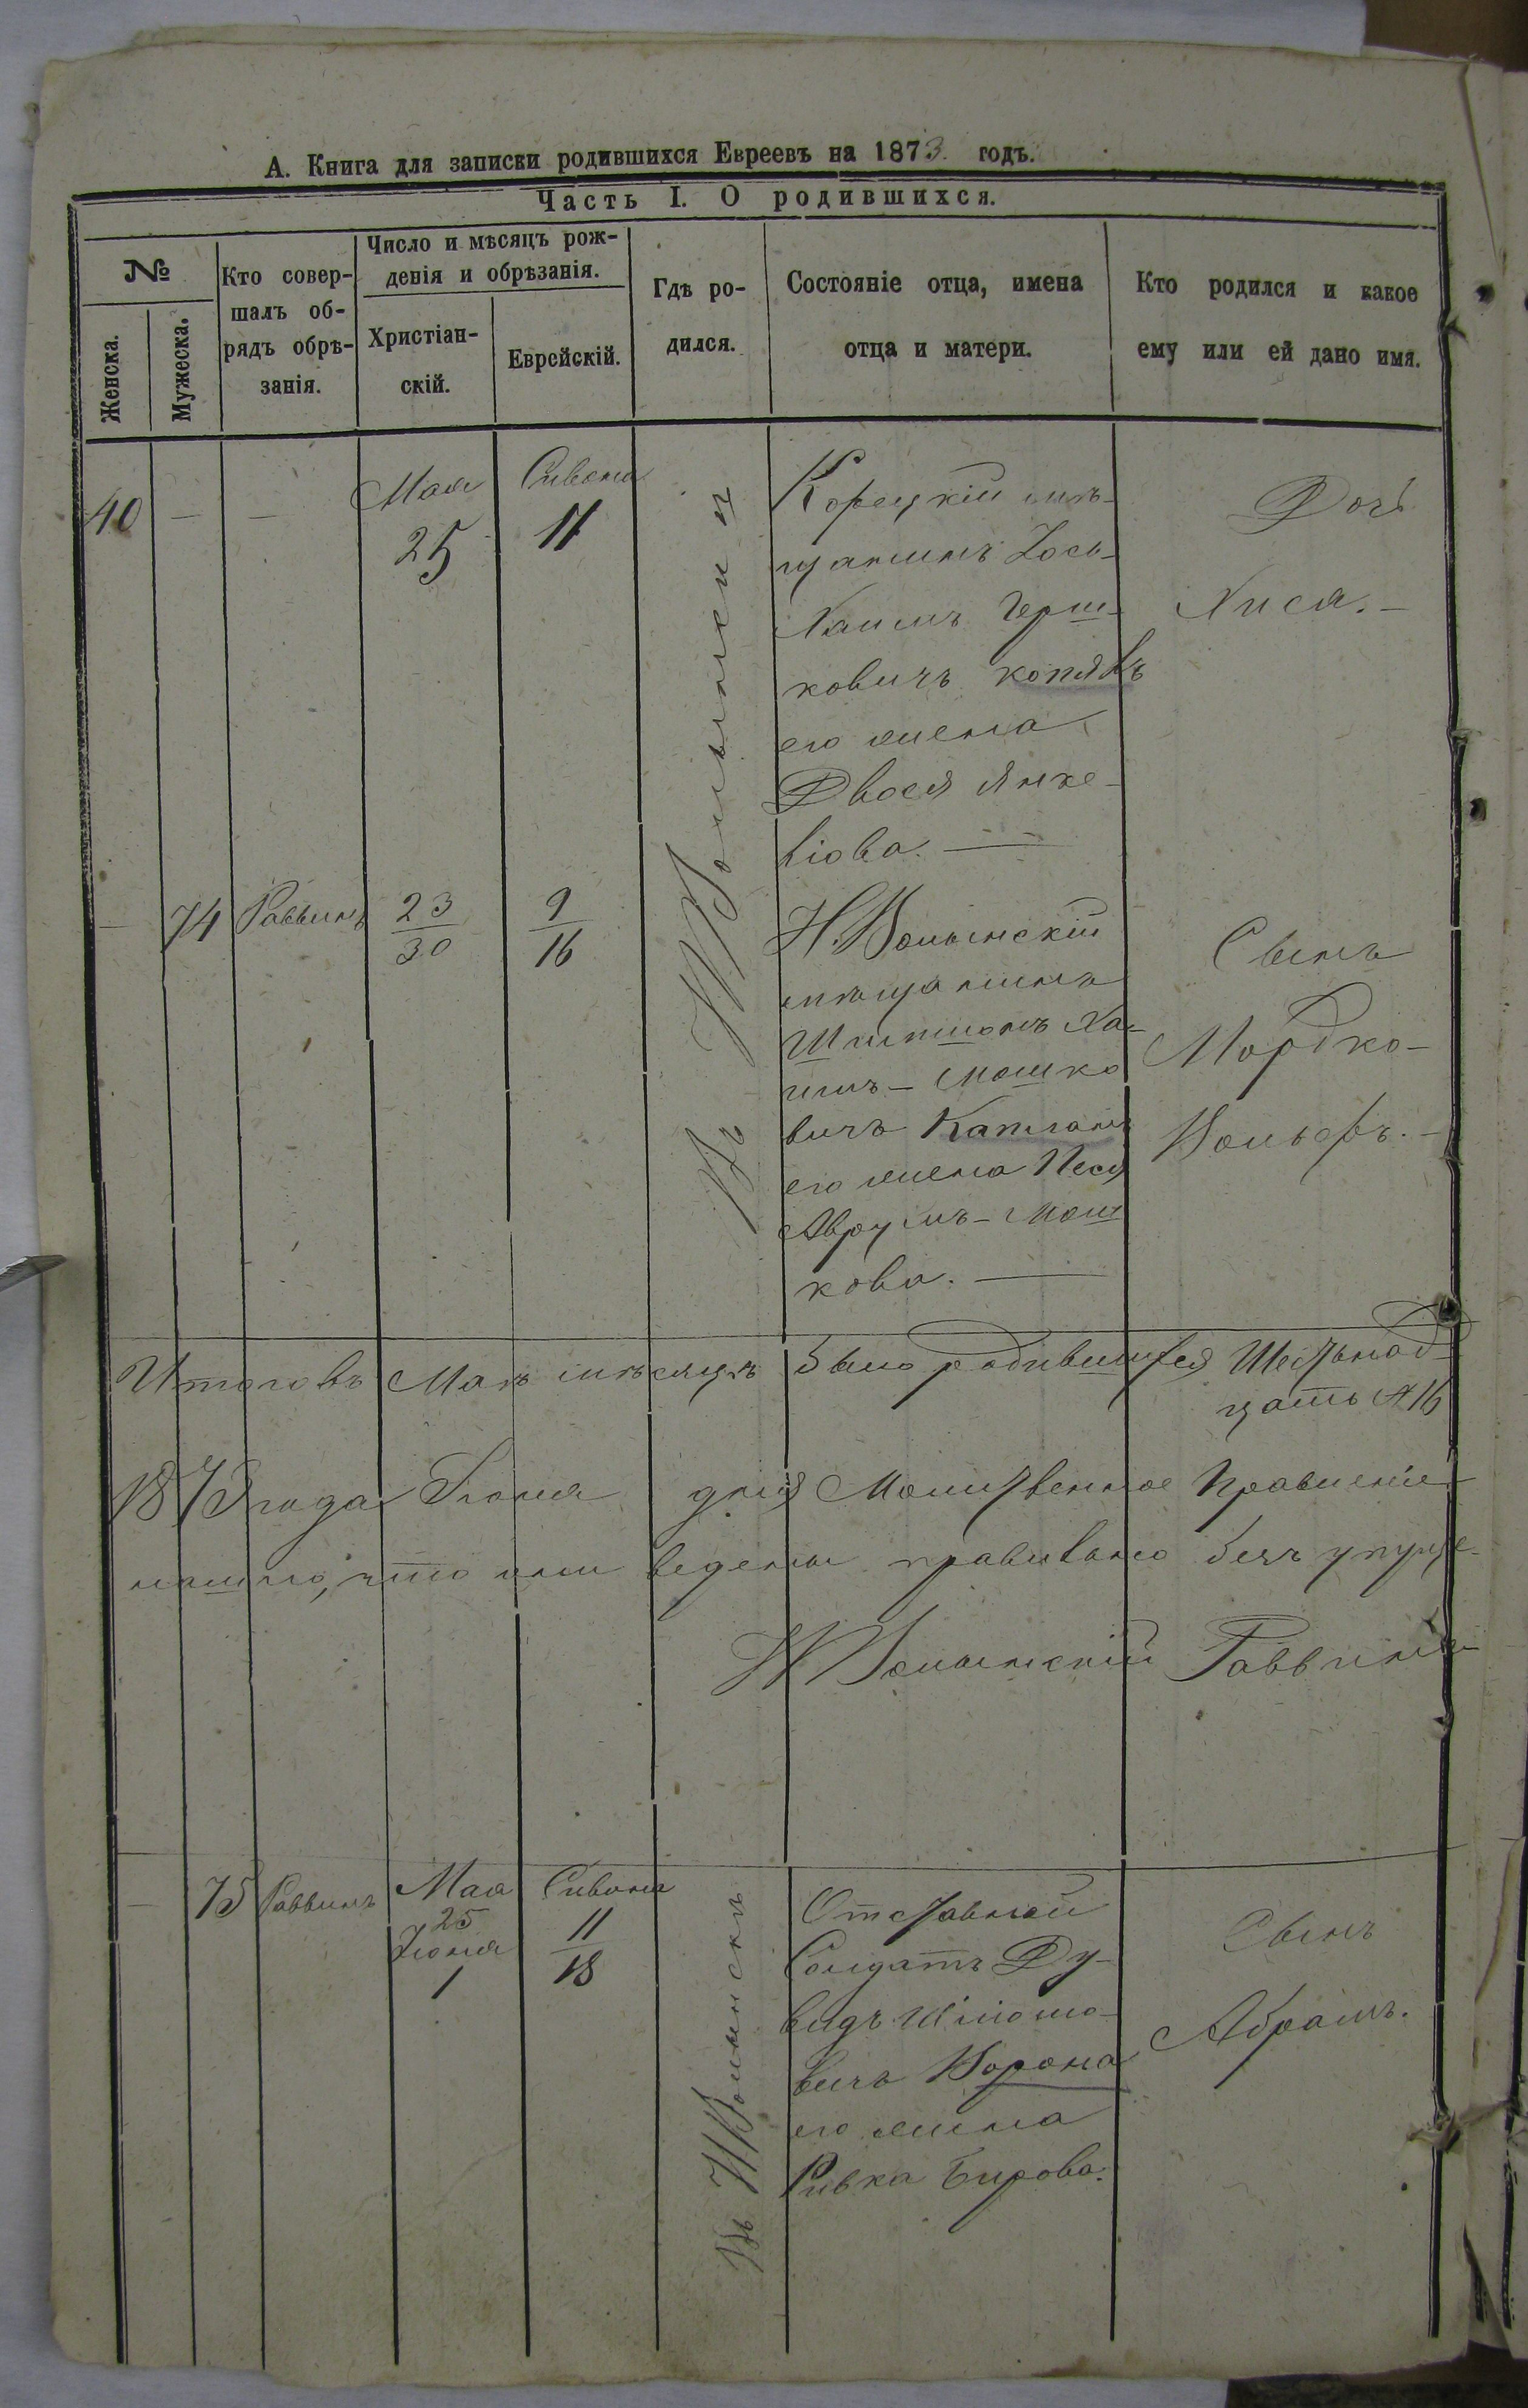 А. Книга для записки родившихся Евреевъ на 1873 годъ.
Часть I. О родившихся.
№
Женска.
Мужеска.
Кто совер-
шалъ об-
рядъ обрѣ-
занія.
Число и мѣсяцъ рож-
денія и обрѣзанія.
Христіан-
скій.
Еврейскій.
Гдѣ ро-
дился.
Состояніе отца, имена
отца и матери.
Кто родился и какое
ему или ей дано имя.
40
—
—
Мая
25
Сивона
11
Въ НВолынски
Корецкій мѣ-
щанинъ Іось-
Хаимъ Герш-
ковичъ
его жена
Двося Янке-
Дочь
Хися.—
—
74
Раввинъ
23
30
9
16
Н.Волынскій
мѣщанинъ
Ха-
имъ-Мошко
вичъ Капланъ
его жена Песя
Аврумъ-Мош
кова.—
Сынъ
Мордко-
Вольфъ.—
Итого въ Маѣ мѣсяцѣ было родившихся Шестьнад-
цать №16
1873 года Іюня дня Молитвенное Правленіе
нашло, что они ведены правильно безъ упуще-
НВолынскій Раввинъ
—
75
Раввинъ
Мая
25
Іюня
1
Сивана
11
18
Въ НВолынскѣ
Отставной
Солдатъ Ду-
видъ Шліомо-
вичъ Ворона
его жена
Ривка Бирова.
Сынъ
Абрамъ.